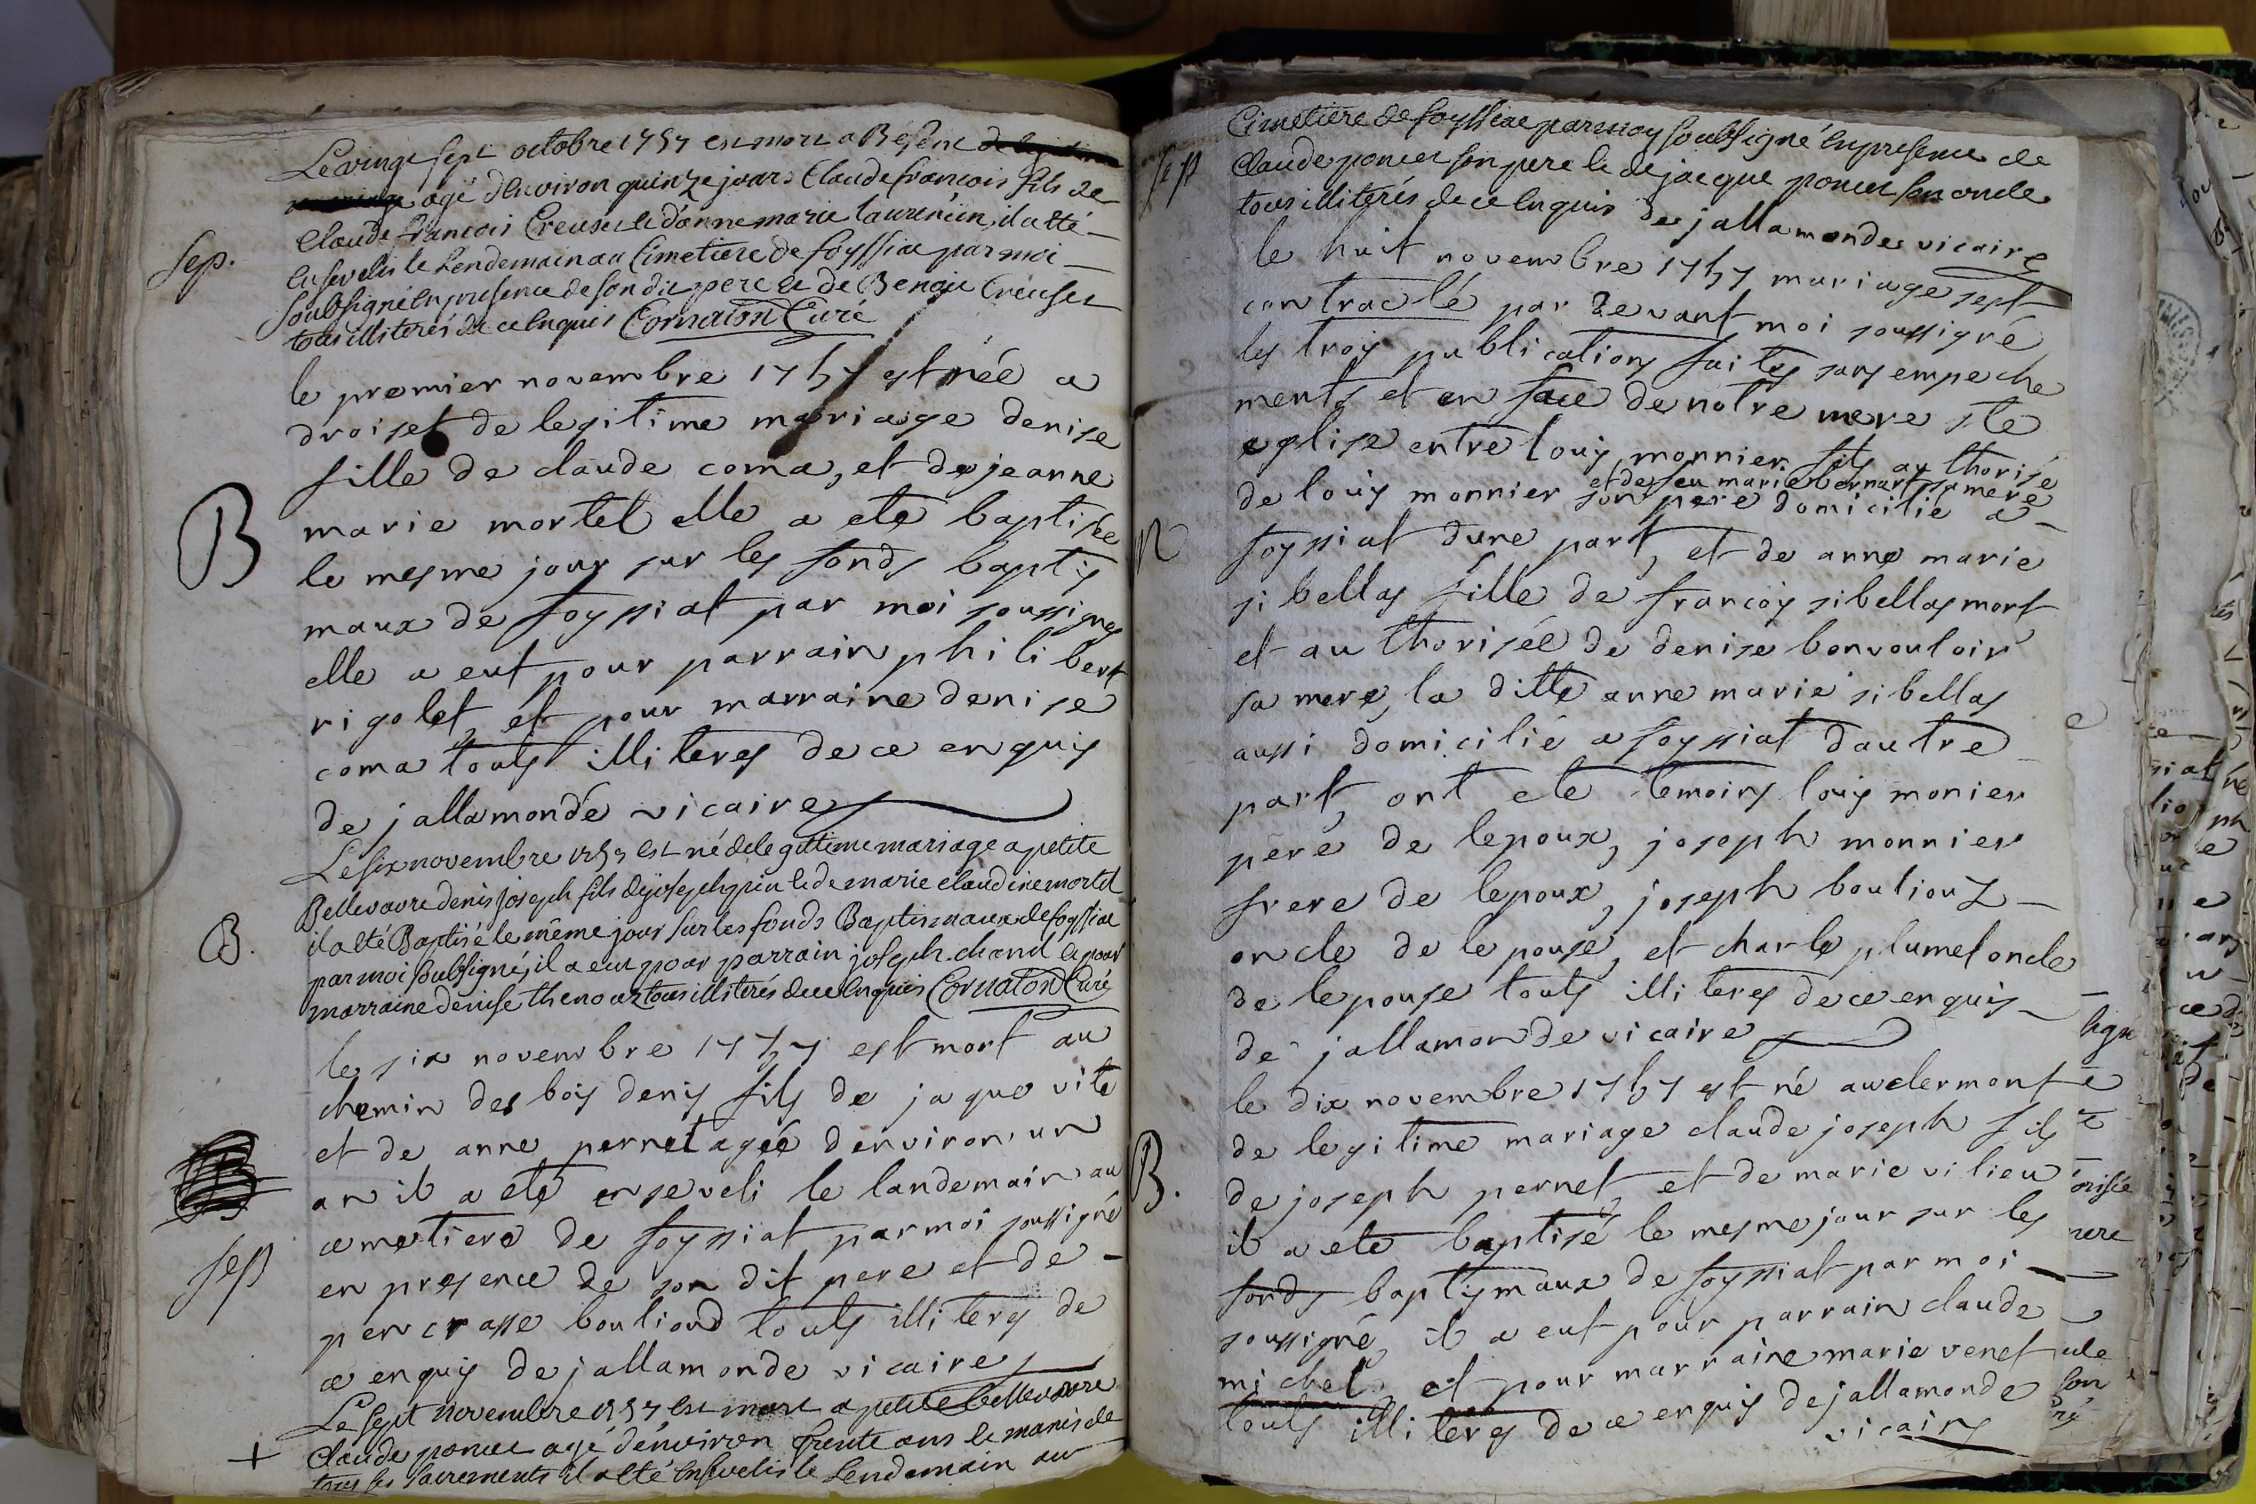 Le vingt sept octobre 1757 est mort a Besenc
agé d'environ quinze jours Claude francois fils de
Claude francois Creuset et d'anne marie laurencin, il a eté
Sep.
ensevelis le Lendemain au Cimetiere de foyssia par moi
soubsigné en presence de son dit pere et de Benoit Creuset
tous illiterés de ce enquis Cornaton Curé
le premier novembre 1757 est née a
droiset de legitime mariage denise
fille de claude coma, et de jeanne
B
marie mortel elle a ete baptisée
le mesme jour sur les fonds baptis
maux de foyssiat par moi soussigné
elle a eut pour parrain philibert
rigolet et pour marraine denise
coma touts illiteres de ce enquis
de jallamonde vicaire
Le six novembre 1757 est né de legittime mariage a petite
Bellevavre denis joseph fils de joseph pin et de marie claudine mortel
B.
il a eté Baptisé le même jour sur les fonds Baptismaux de foyssia
par moi soubsigné, il a eut pour parrain joseph chanel et pour
marraine denise thenoz tous illiterés de ce enquis Cornaton Curé
le six novembre 1757 est mort au
chemin des bois denis fils de jaque vite
et de anne pernet agée denviron un
B
an il a eté enseveli le landemain au
cemetiere de foyssiat par moi soussigné
sep
en presence de son dit pere et de
pencrasse bouliond touts illiteres de
ce enquis de jallamonde vicaire
Le sept novembre 1757 est mort a petite bellevavre
+
Claude poncet agé d'environ trente ans et munis de
tous ses sacrements il a eté ensevelis le Lendemain au
Cimetiere de foyssia par moy soubsigné en presence de
sep
Claude poncet son pere et de jacque poncet son oncle
tous illiterés de ce enquis de jallamonde vicaire
le huit novembre 1757 mariage sest
contracté par devant moi soussigné
les trois publications faites sans empeche
ments et en face de notre mere ste
eglise entre louis monnier fils authorisé
et de feu marie bernart sa mere
de louis monnier son pere domicilié a
M
foyssiat dune part, et de anne marie
sibellas fille de francois sibellas mort
et authorisée de denise bonvouloir
sa mere, la ditte anne marie sibellas
aussi domicilié a foyssiat dautre
part, ont eté temoins louis monier
pere de lepoux, joseph monnier
frere de lepoux, joseph bouliouz
oncle de lepouse, et charle plumet oncle
de lepouse touts illiteres de ce enquis
de jallamonde vicaire
le dix novembre 1757 est né au clermont
de legitime mariage claude joseph fils
B.
de joseph pernet, et de marie vilieu
il a ete baptisé le mesme jour sur les
fonds baptismaux de foyssiat par moi
soussigné, il a eut pour parrain claude
michel, et pour marraine marie venet
touts illiteres de ce enquis de jallamonde
vicaire